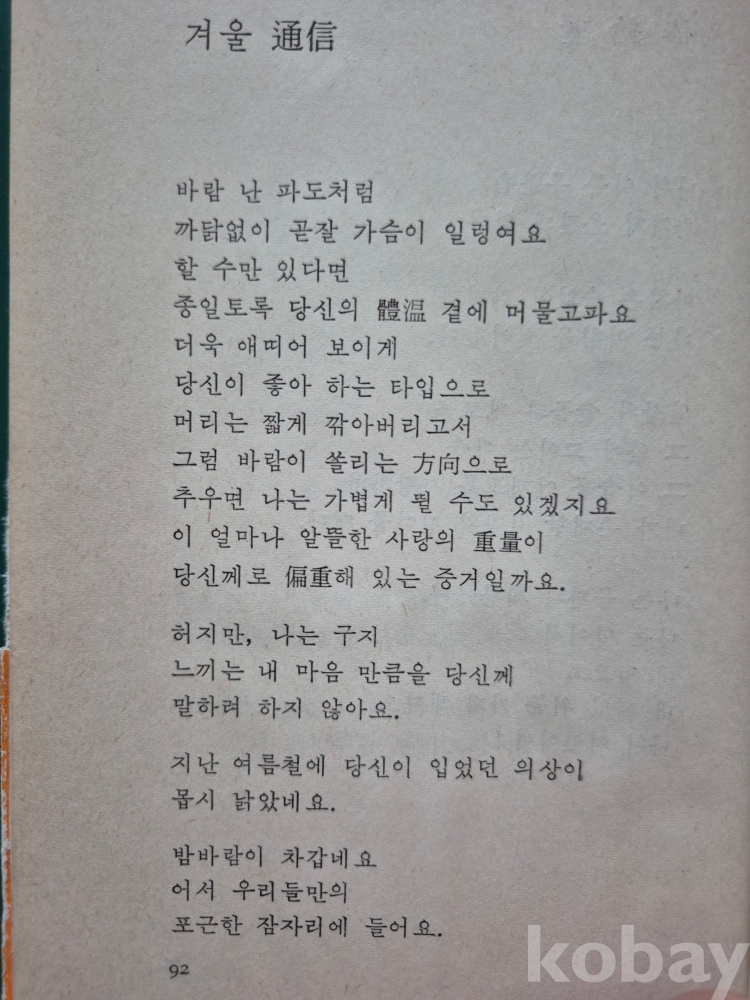 겨울 通信
바람 난 파도처럼
까닭없이 곧잘 가슴이 일렁여요
할 수만 있다면
종일토록 당신의 體温 곁에 머물고파요
더욱 애띠어 보이게
당신이 좋아 하는 타입으로
머리는 짧게 깎아버리고서
그럼 바람이 쏠리는 方向으로
추우면 나는 가볍게 뛸 수도 있겠지요
이 얼마나 알뜰한 사랑의 重量이
당신께로 偏重해 있는 증거일까요.
허지만, 나는 구지
느끼는 내 마음 만큼을 당신께
말하려 하지 않아요.
지난 여름철에 당신이 입었던 의상이
몹시 낡았네요.
밤바람이 차갑네요
어서 우리들만의
포근한 잠자리에 들어요.
92
kobay